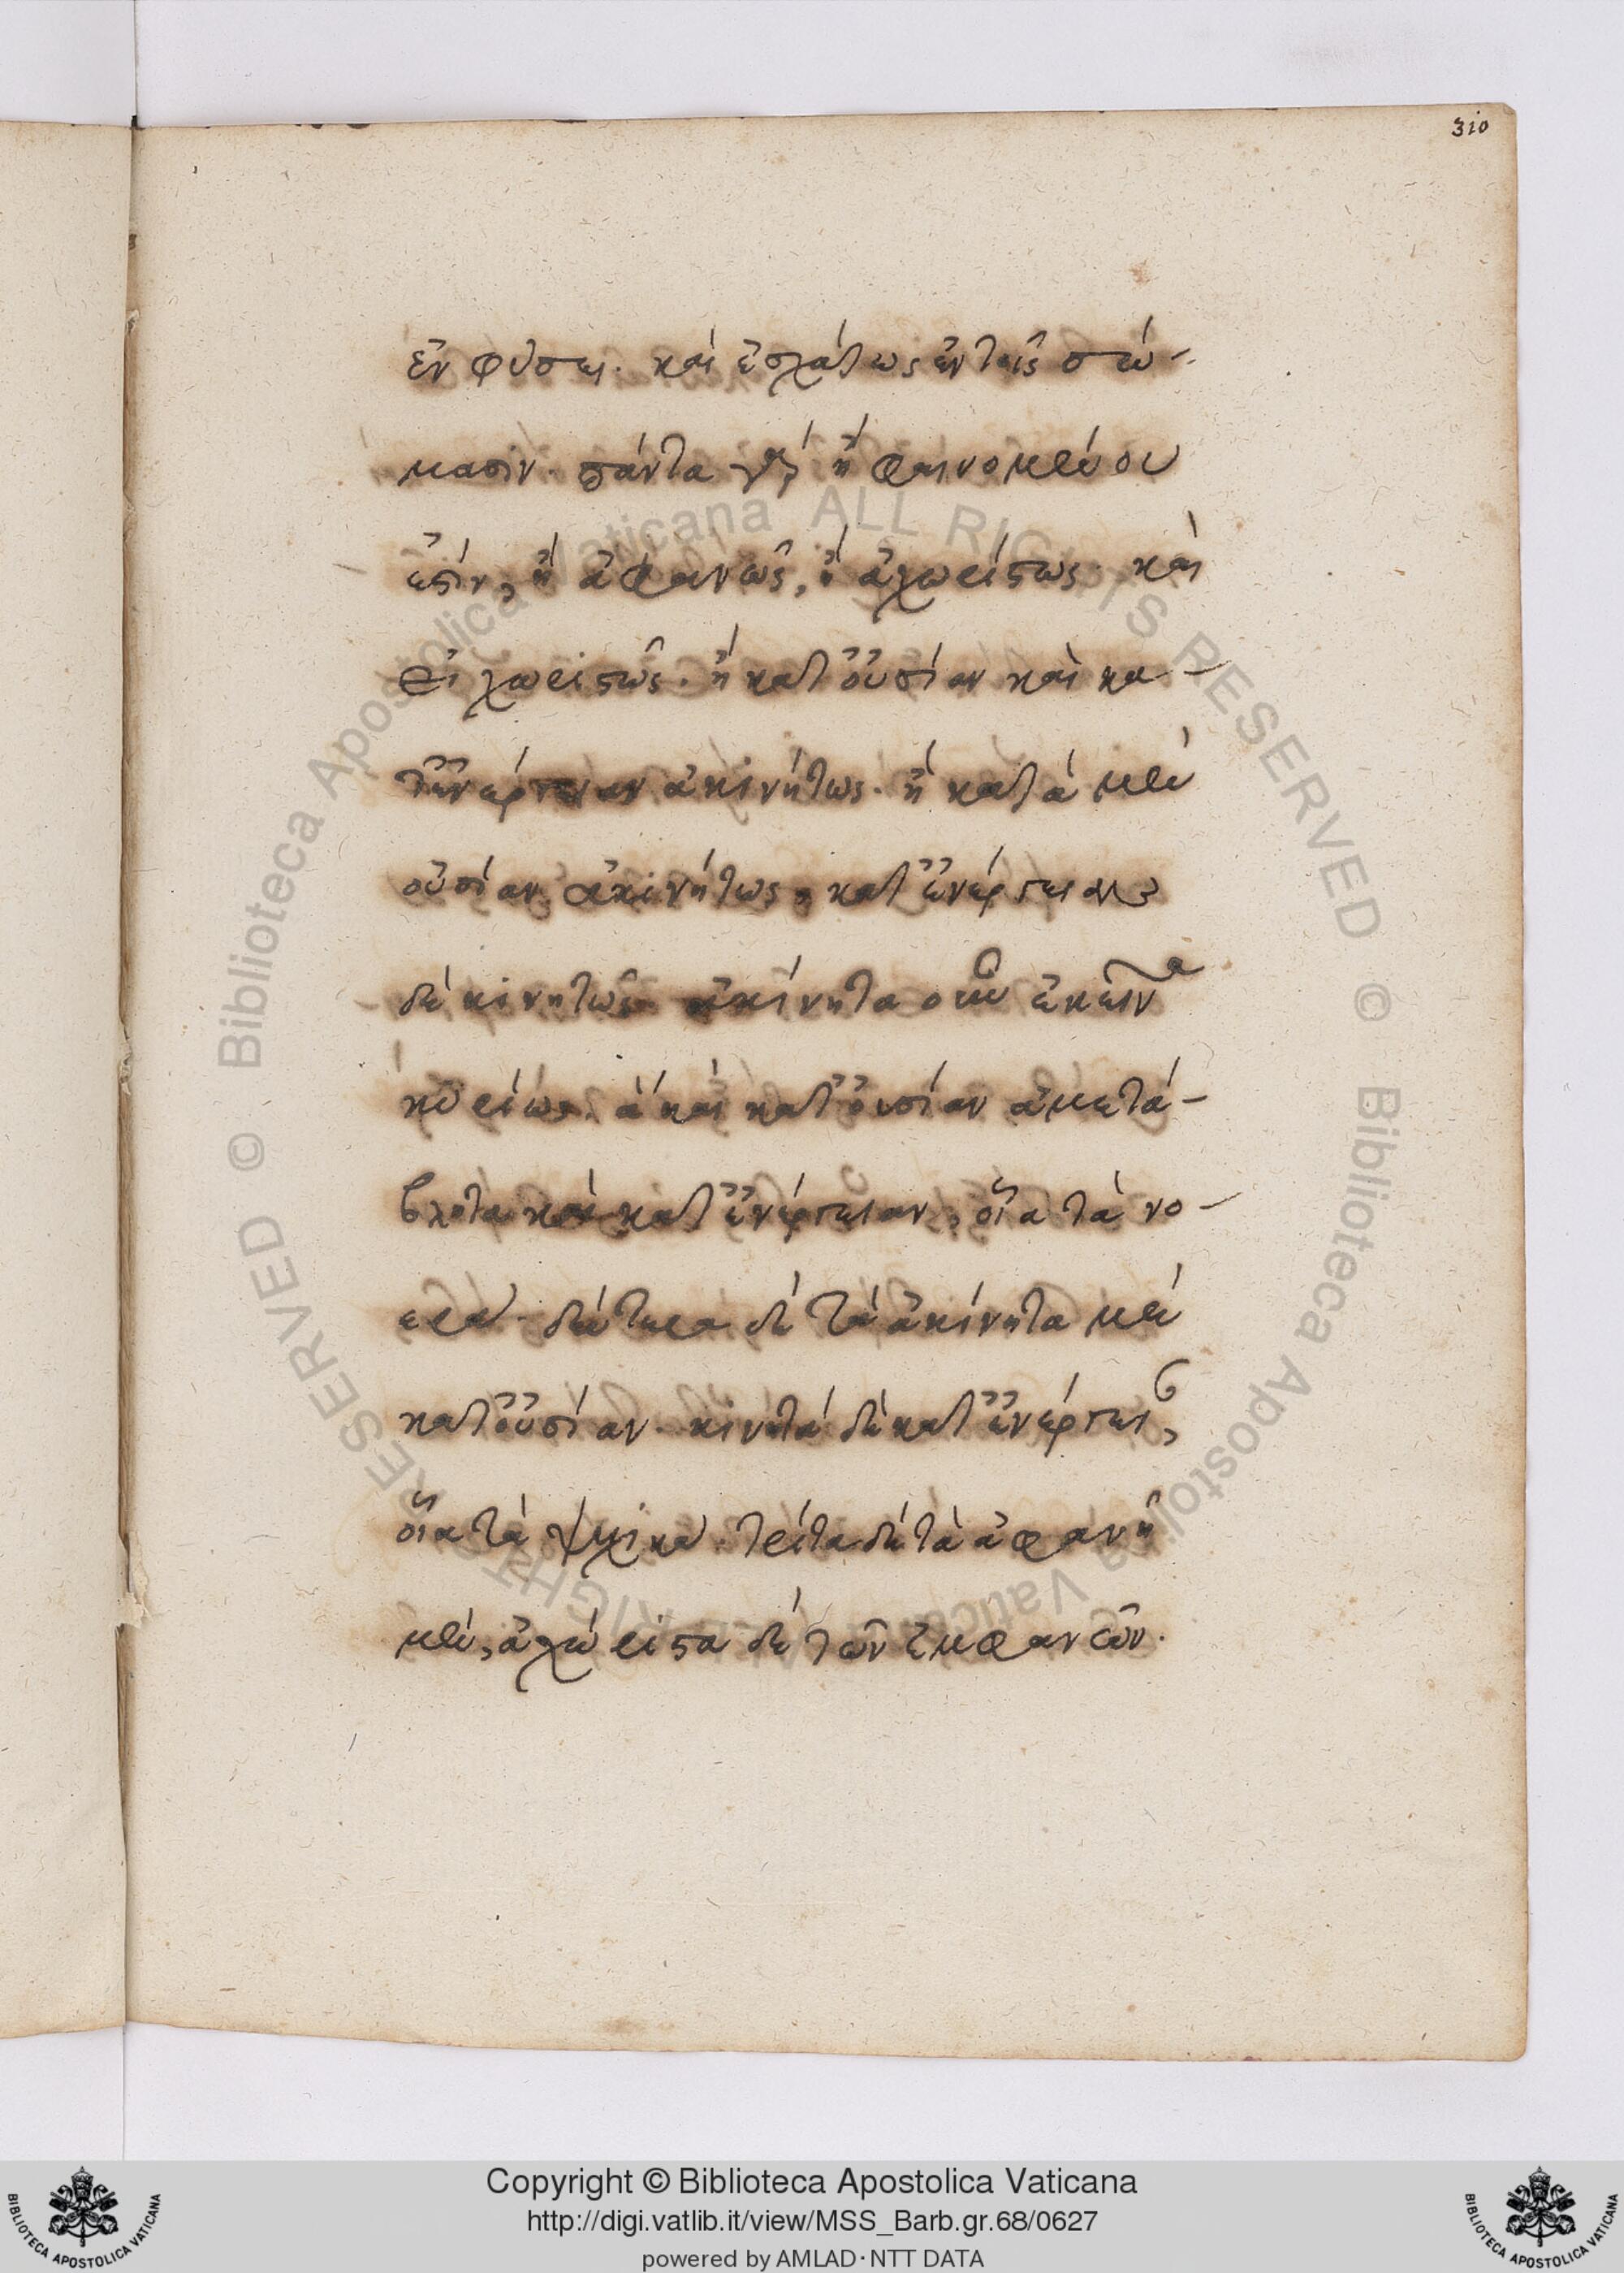 310
ἐν φύσει. καὶ ἐσχάτως ἐν τοῖς σώ-
μασιν. πάντα γὰρ ἢ φαινομένου
ἐστίν, ἢ ἀφανῶς, ἢ ἀχωρίστως. καὶ
εἰ χωριστῶς. ἢ κατ οὐσίαν καὶ κα
τ ἐνέργειαν ἀκινήτως. ἢ κατὰ μὲν
οὐσίαν ἀκινήτως, κατ ἐνέργειαν
δὲ κινητῶς ἀκίνητα οὖν ἐκεῖνα
κυρίως. ἃ καὶ κατ οὐσίαν ἀμετά-
βλητα καὶ κατ ἐνέργειαν, οἷα τὰ νο-
ερά. δεύτερα δὲ τὰ ἀκίνητα μὲν
κατ οὐσίαν. κινητὰ δὲ κατ ἐνέργειαν,
οἷα τὰ ψυχικά. τρίτα δὲ τὰ ἀφανῆ
μέν, ἀχώριστα δὲ τῶν ἐμφανῶν.
Copyright © Biblioteca Apostolica Vaticana
http://digi.vatlib.it/view/MSS_Barb.gr.68/0627
powered by AMLAD·NTT DATA
BIBLIOTECA APOSTOLICA VATICANA
BIBLIOTECA APOSTOLICA VATICANA
© Biblioteca Apostolica Vaticana ALL RIGHTS RESERVED
© Biblioteca Apostolica Vaticana ALL RIGHTS RESERVED